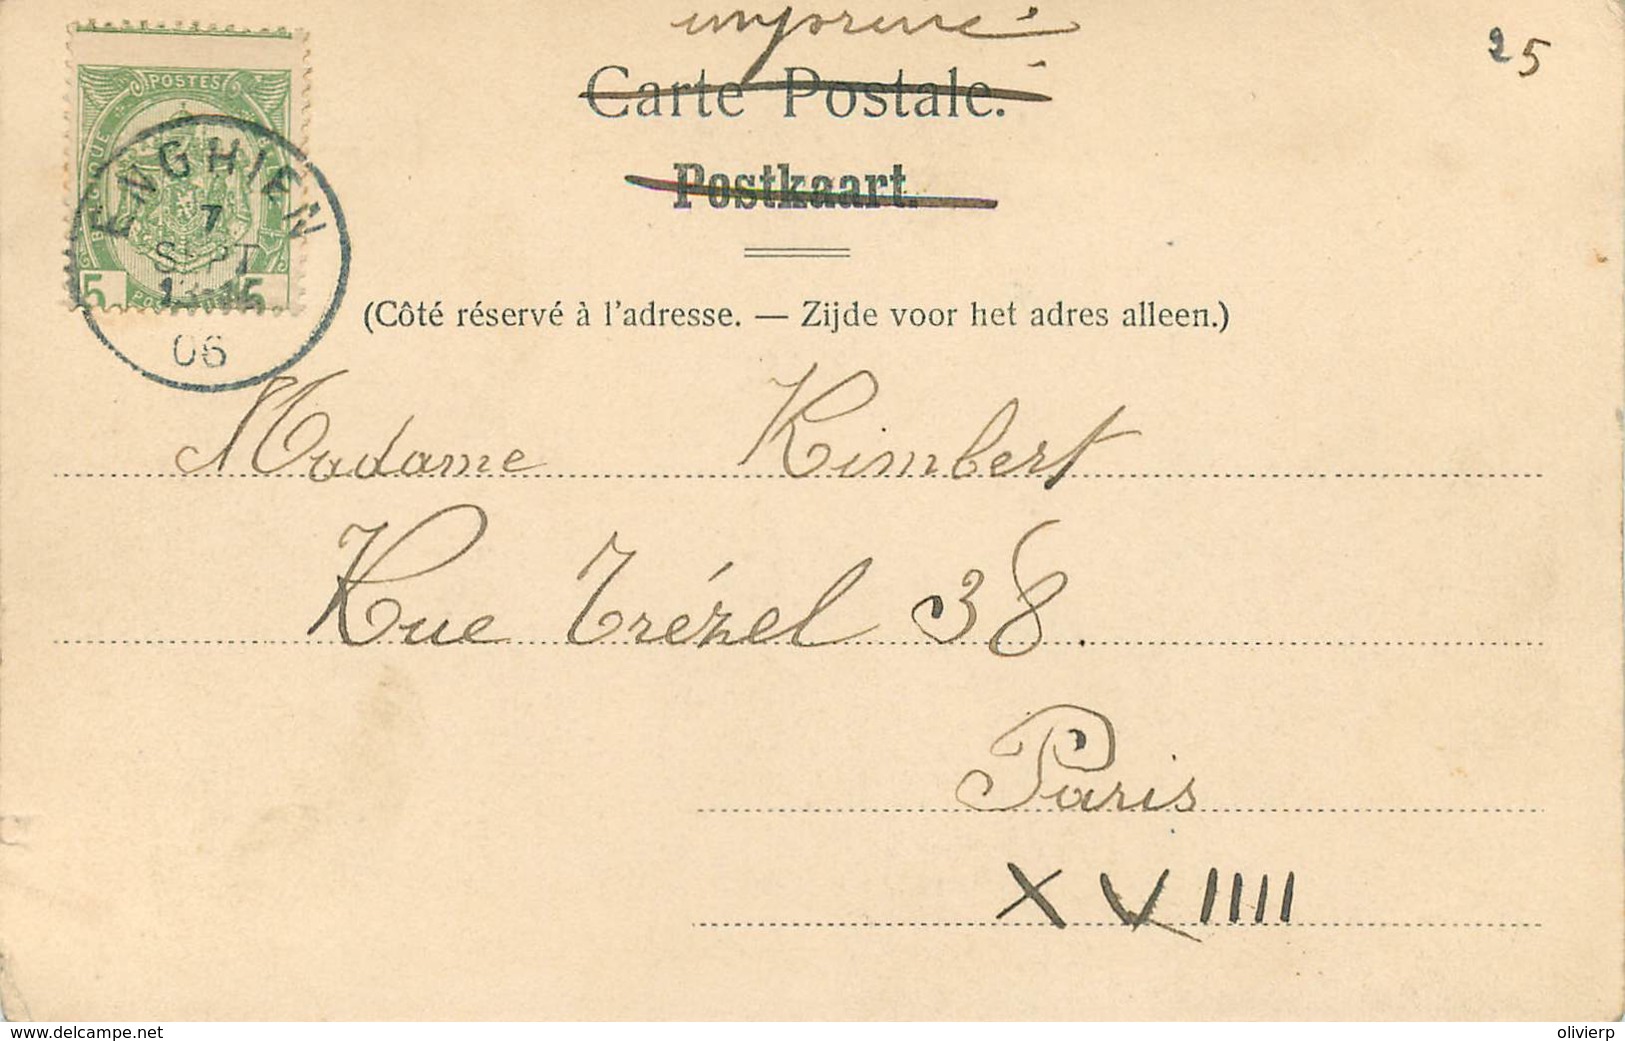 imprimé
25
Carte Postale.
Postkaart.
POSTES
BELGIQUE
ENGHIEN
7
SEPT
5 5
06
(Côté réservé à l'adresse. — Zijde voor het adres alleen.)
Madame Rimbert
Rue Trézel 38.
Paris
XVIIII
delcampe.net
olivierp